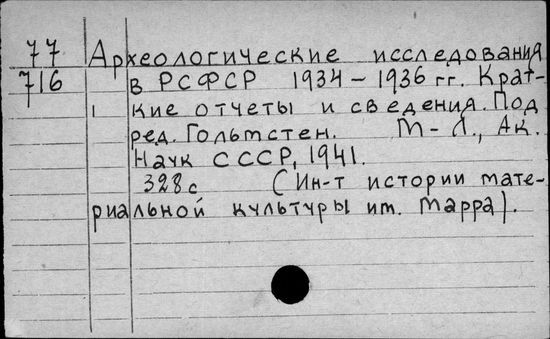 77 Археологические исследования
716 в РСФСР 1934 – 1936 гг. Крат-
кие отчеты и сведения. Под
ред. Гольмстен. М – Л., Ак.
Наук СССР, 1941.
328 с (Ин-т истории мате-
риальной культуры им. Марра).